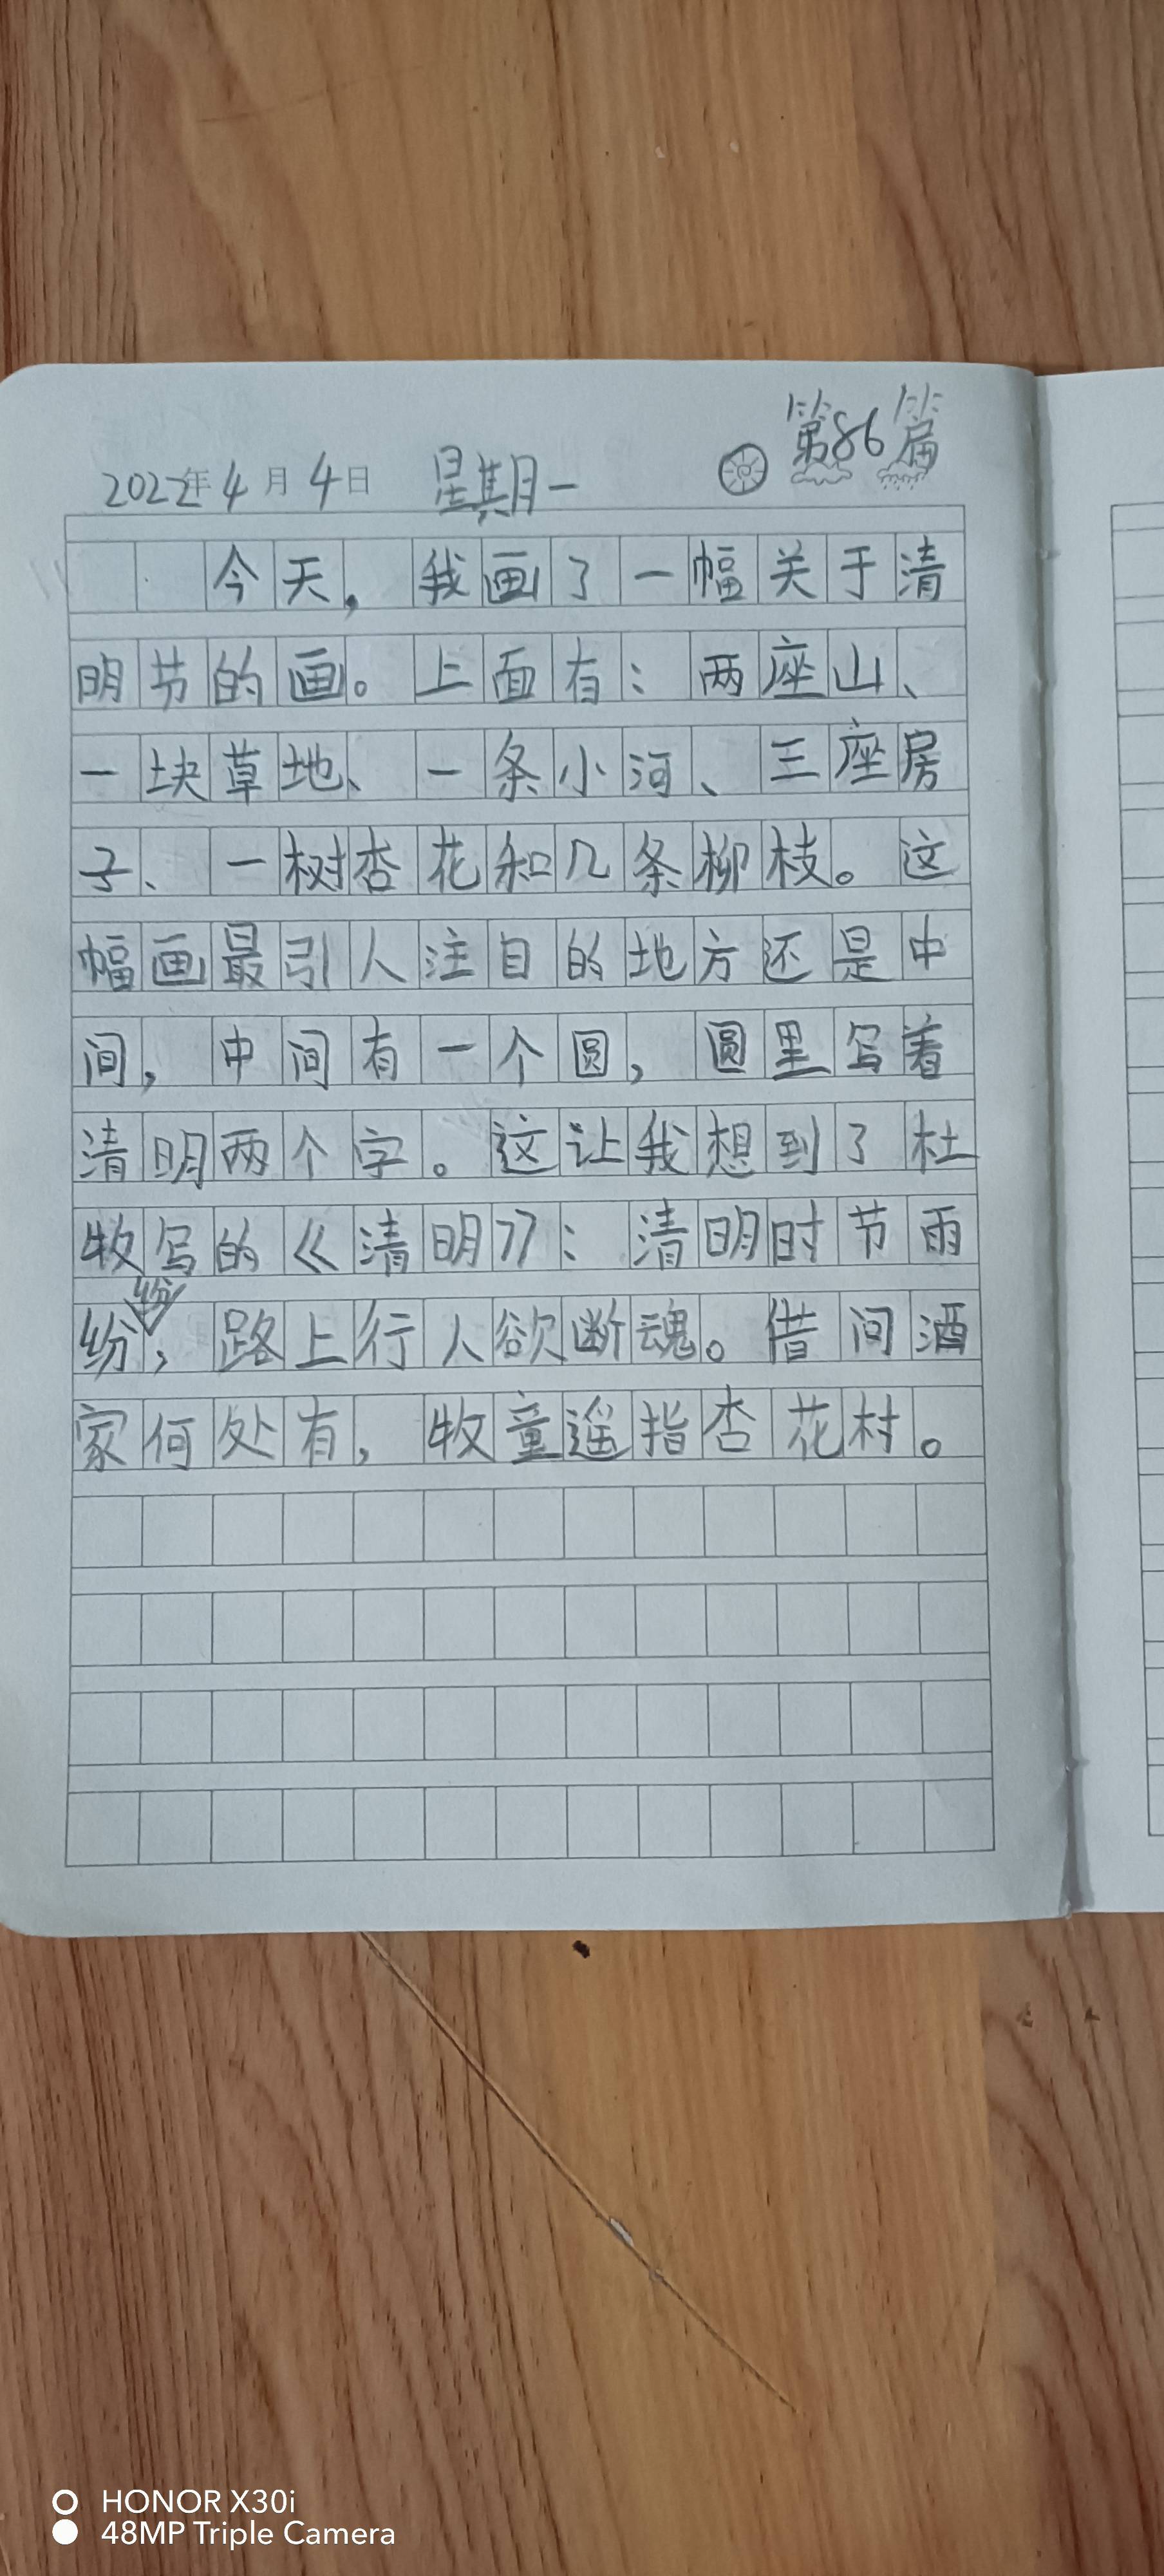 第86篇
2022年4月4日 星期一
今天，我画了一幅关于清
明节的画。上面有：两座山、
一块草地、一条小河、三座房
子、一树杏花和几条柳枝。这
幅画最引人注目的地方还是中
间，中间有一个圆，圆里写着
清明两个字。这让我想到了杜
牧写的《清明》：清明时节雨
纷纷，路上行人欲断魂。借问酒
家何处有，牧童遥指杏花村。
HONOR X30i
48MP Triple Camera